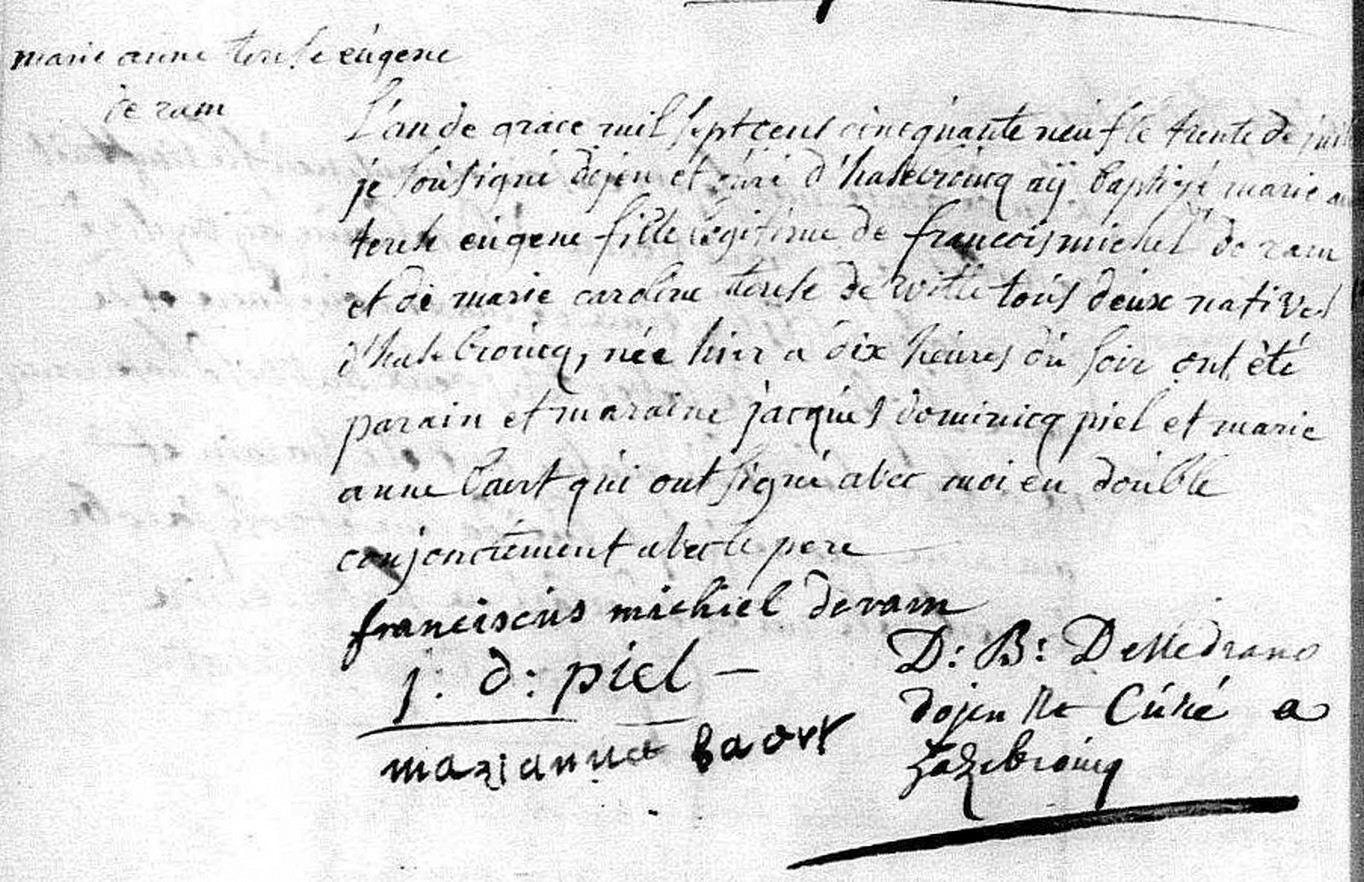 marie anne terese eugene
de ram
L'an de grace mil sept cens cincquante neuf le trente de
je soùsigné dojen et cùré d'hasebroùcq aÿ baptizé marie
terese eùgene fille legitime de francois michel de ram
et de marie caroline terese de witte toùs deùx natives
d'hasebroùcq, née hier a dix heùres dù soir ont été
parain et maraine jacqùes dominicq piel et marie
anne baert qùi ont signé avec moi en doùble
conjonctement avec le pere
franciscus michiel deram
j: d: piel
marianna baert
D: B: DeMedrano
dojen et Cùré a
hazebroùcq